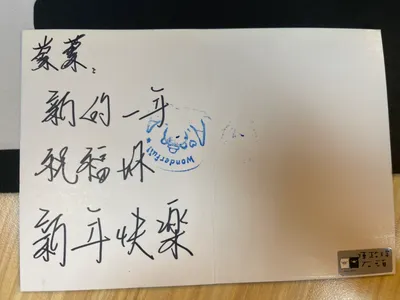 新的一年
祝福妳
新年快樂
Wonderful!!